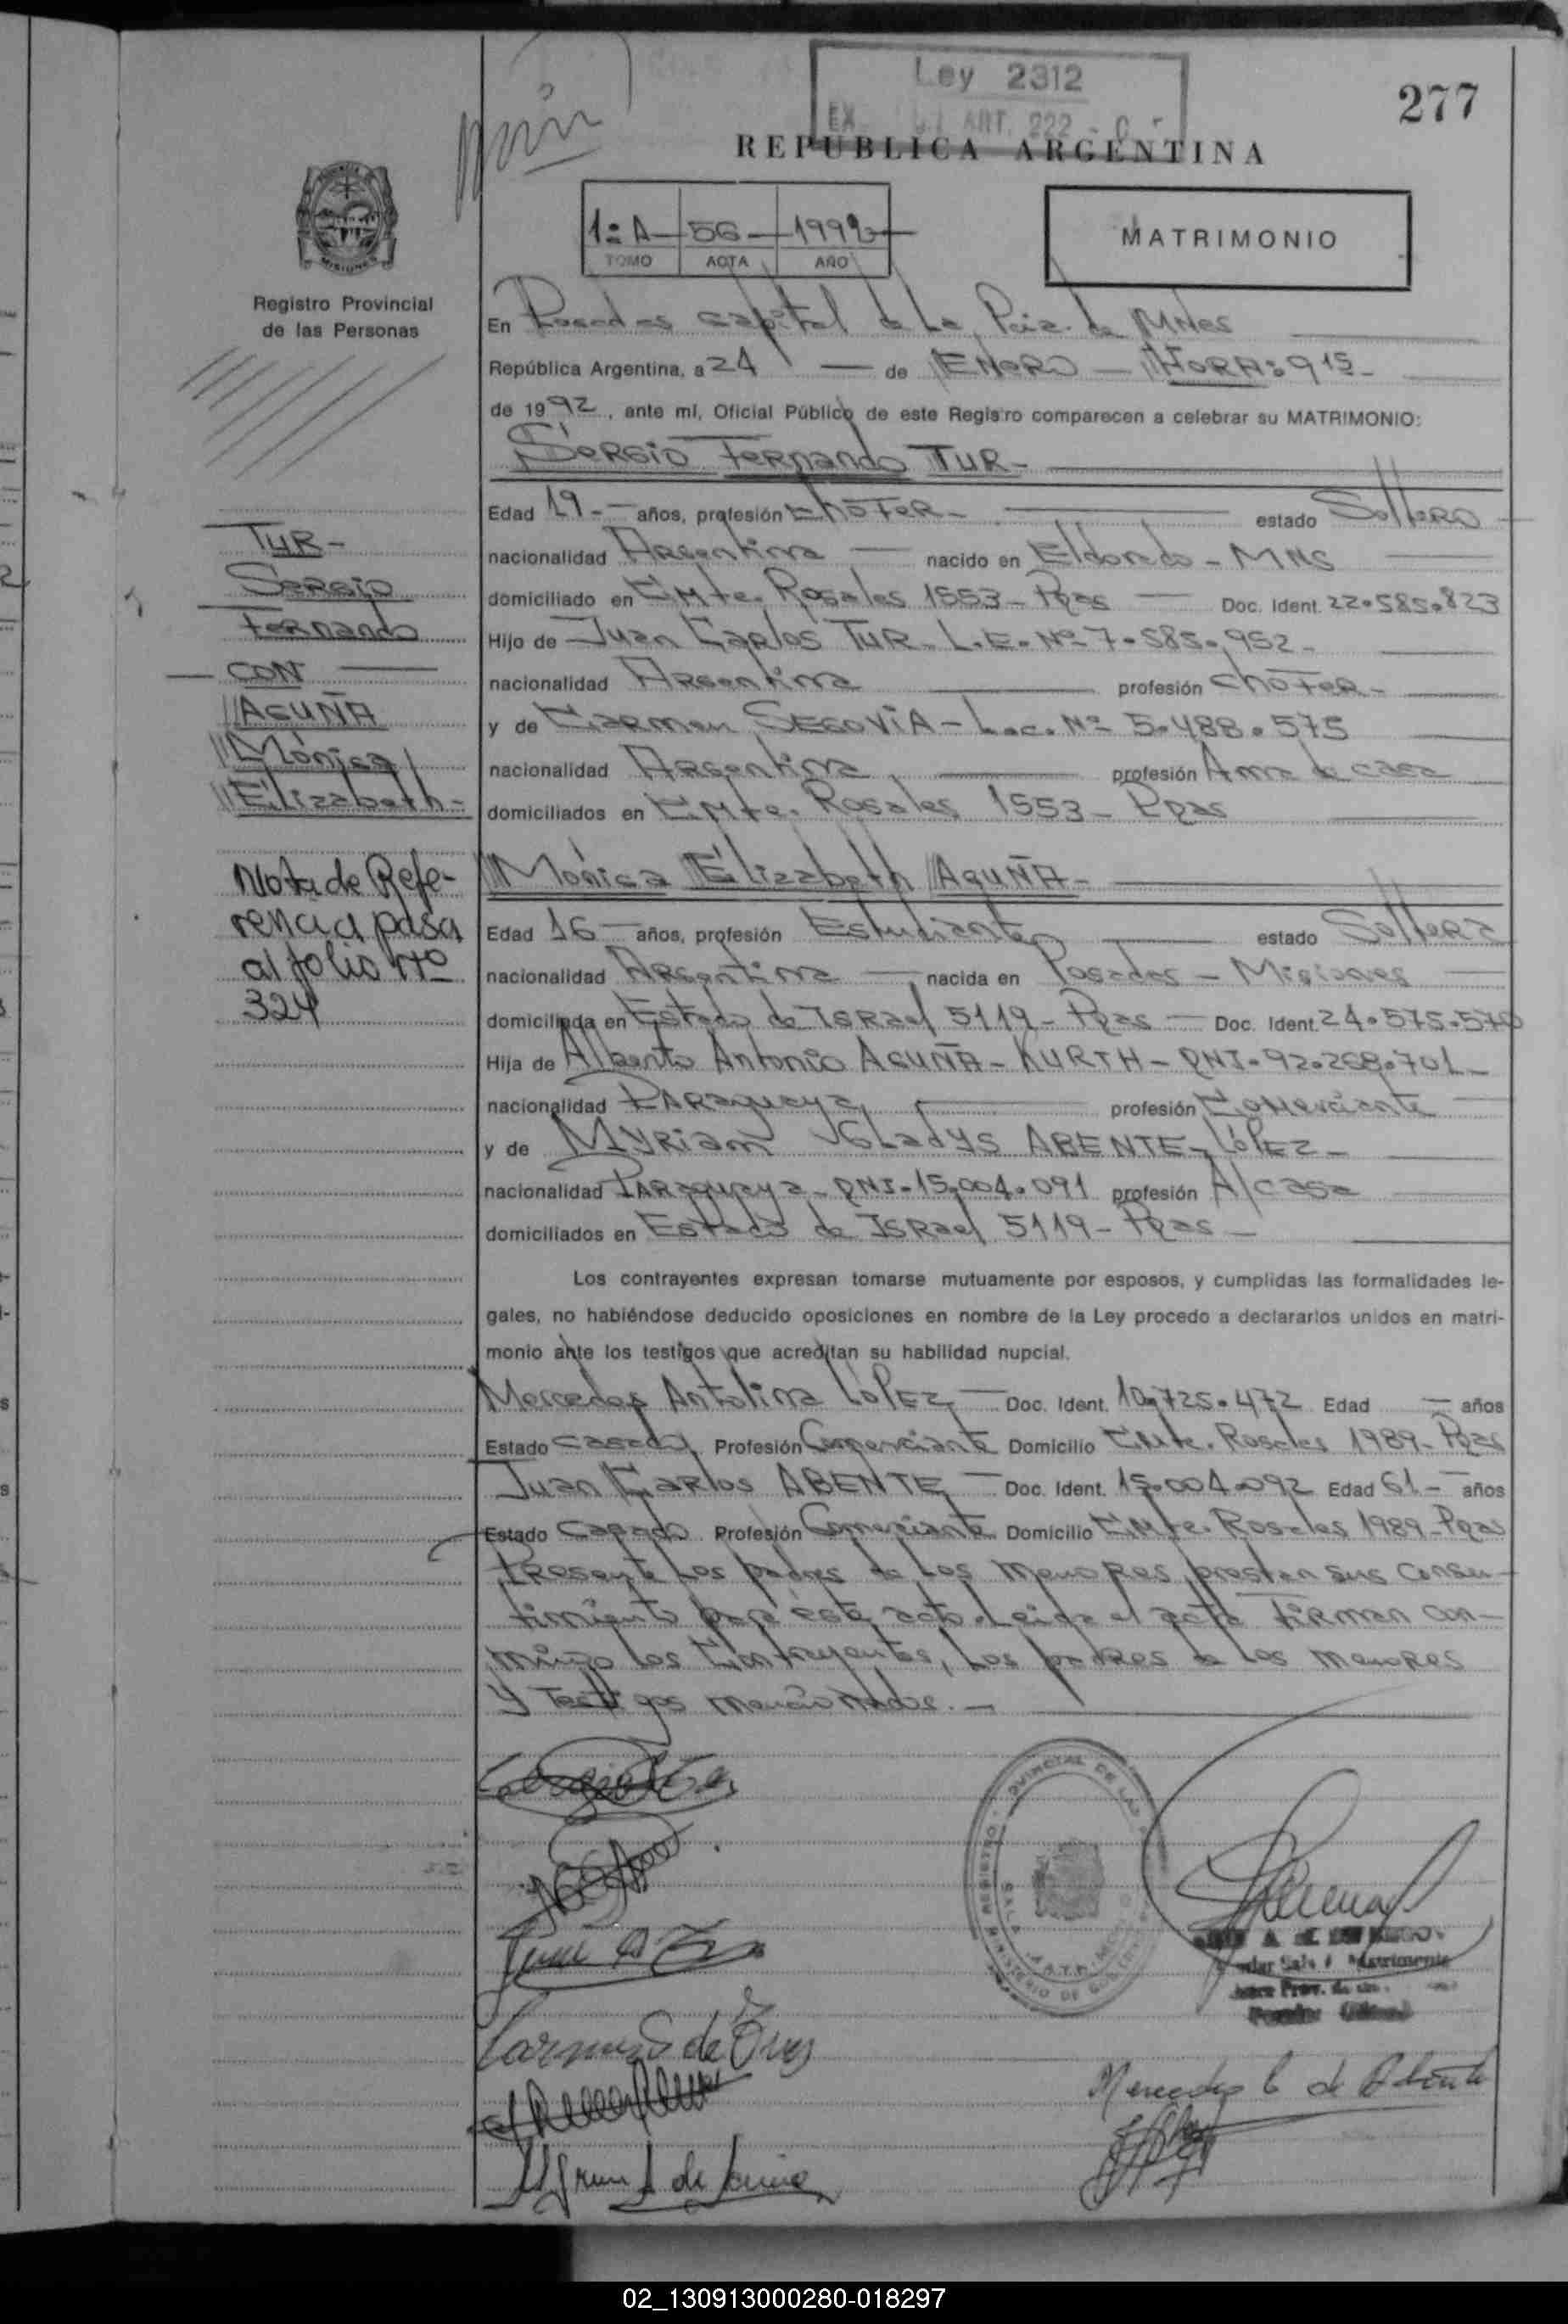 Ley 2312
ART. 222
277
REPUBLICA ARGENTINA
1º A 56 1992
TOMO ACTA AÑO
MATRIMONIO
MISIONES
Registro Provincial
de las Personas
En Posadas capital de La Pcia. de MNes
República Argentina, a 24 — de ENERO — HORA: 9 15 -
de 1992, ante mí, Oficial Público de este Registro comparecen a celebrar su MATRIMONIO:
Sergio Fernando TUR -
Edad 19 - años, profesión choFeR - estado Soltero
nacionalidad Argentina — nacido en Eldorado - MNS
domiciliado en Cmte. Rosales 1553 - Pdas — Doc. Ident. 22.585.823
Hijo de Juan Carlos TUR - L.E. Nº 7.585.952 -
nacionalidad Argentina profesión choFeR -
y de Carmen SEGOVIA - L.C. Nº 5.488.575
nacionalidad Argentina profesión Ama de casa
domiciliados en Cmte. Rosales 1553 - Pdas
TUR -
Sergio
Fernando
CON
ACUÑA
Mónica
Elizabeth -
Nota de Refe-
rencia pasa
al folio Nº
324
Mónica Elizabeth ACUÑA -
Edad 16 — años, profesión Estudiante estado Soltera
nacionalidad Argentina — nacida en Posadas - Misiones
domiciliada en Estado de ISRael 5119 - Pdas — Doc. Ident. 24.575.570
Hija de Alberto Antonio ACUÑA - KURTH - DNI - 92.268.701 -
nacionalidad PARaguaya profesión Comerciante
y de Myriam Gladys ABENTE - LóPEz -
nacionalidad PARaguaya - DNI - 15.004.091 profesión A/casa
domiciliados en Estado de ISRael 5119 - Pdas -
Los contrayentes expresan tomarse mutuamente por esposos, y cumplidas las formalidades le-
gales, no habiéndose deducido oposiciones en nombre de la Ley procedo a declararlos unidos en matri-
monio ante los testigos que acreditan su habilidad nupcial.
Mercedes Antolina LóPEz — Doc. Ident. 10.725.472 Edad — años
Estado casada Profesión Comerciante Domicilio Cmte. Rosales 1989 - Pdas
Juan Carlos ABENTE — Doc. Ident. 15.004.092 Edad 61 - años
Estado Casado Profesión Comerciante Domicilio Cmte. Rosales 1989 - Pdas
Presente Los padres de Los menores prestan sus consen-
timiento para este acto. Leida el acta FiRman con-
migo los Contrayentes, Los padres de Los menores
y Testigos mencionados. -
REGISTRO PROVINCIAL DE LAS
MINISTERIO DE GOBIERNO
Matrimonio
Mercedes L de Abente
02_130913000280-018297